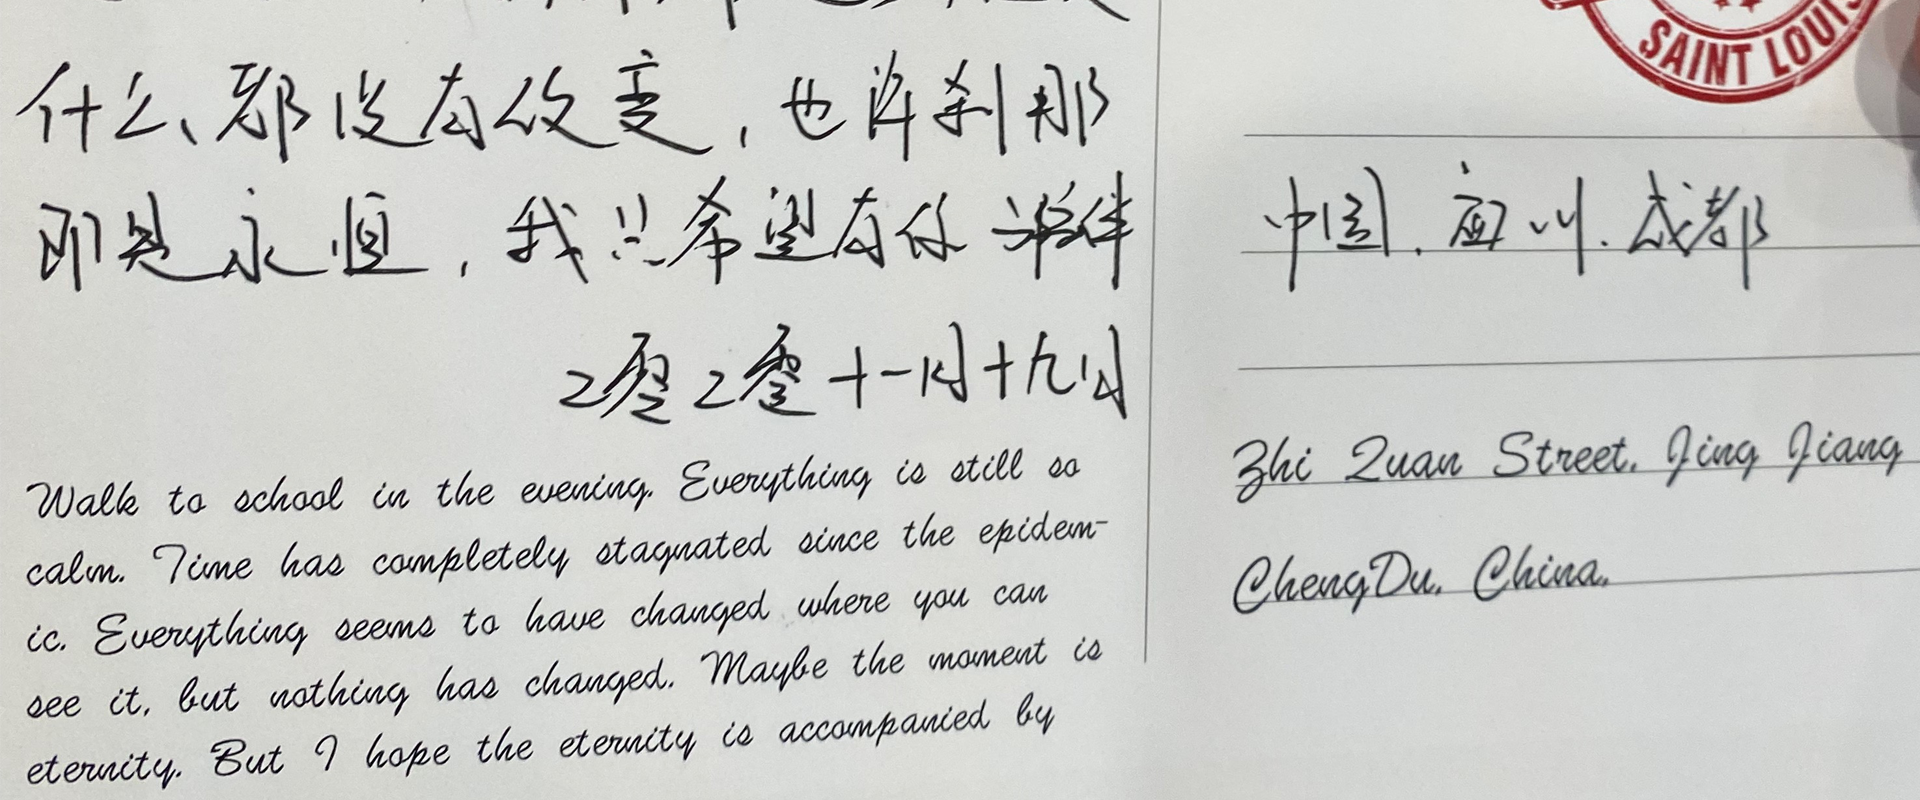 什么都没有改变，也许刹那
即是永恒，我只希望有你
2零2零十一月十九日
Walk to school in the evening. Everything is still so
calm. Time has completely stagnated since the epidem-
ic. Everything seems to have changed where you can
see it, but nothing has changed. Maybe the moment is
eternity. But I hope the eternity is accompanied by
SAINT LOUIS
中国.四川.成都
Zhi Quan Street. Jing Jiang
ChengDu. China.